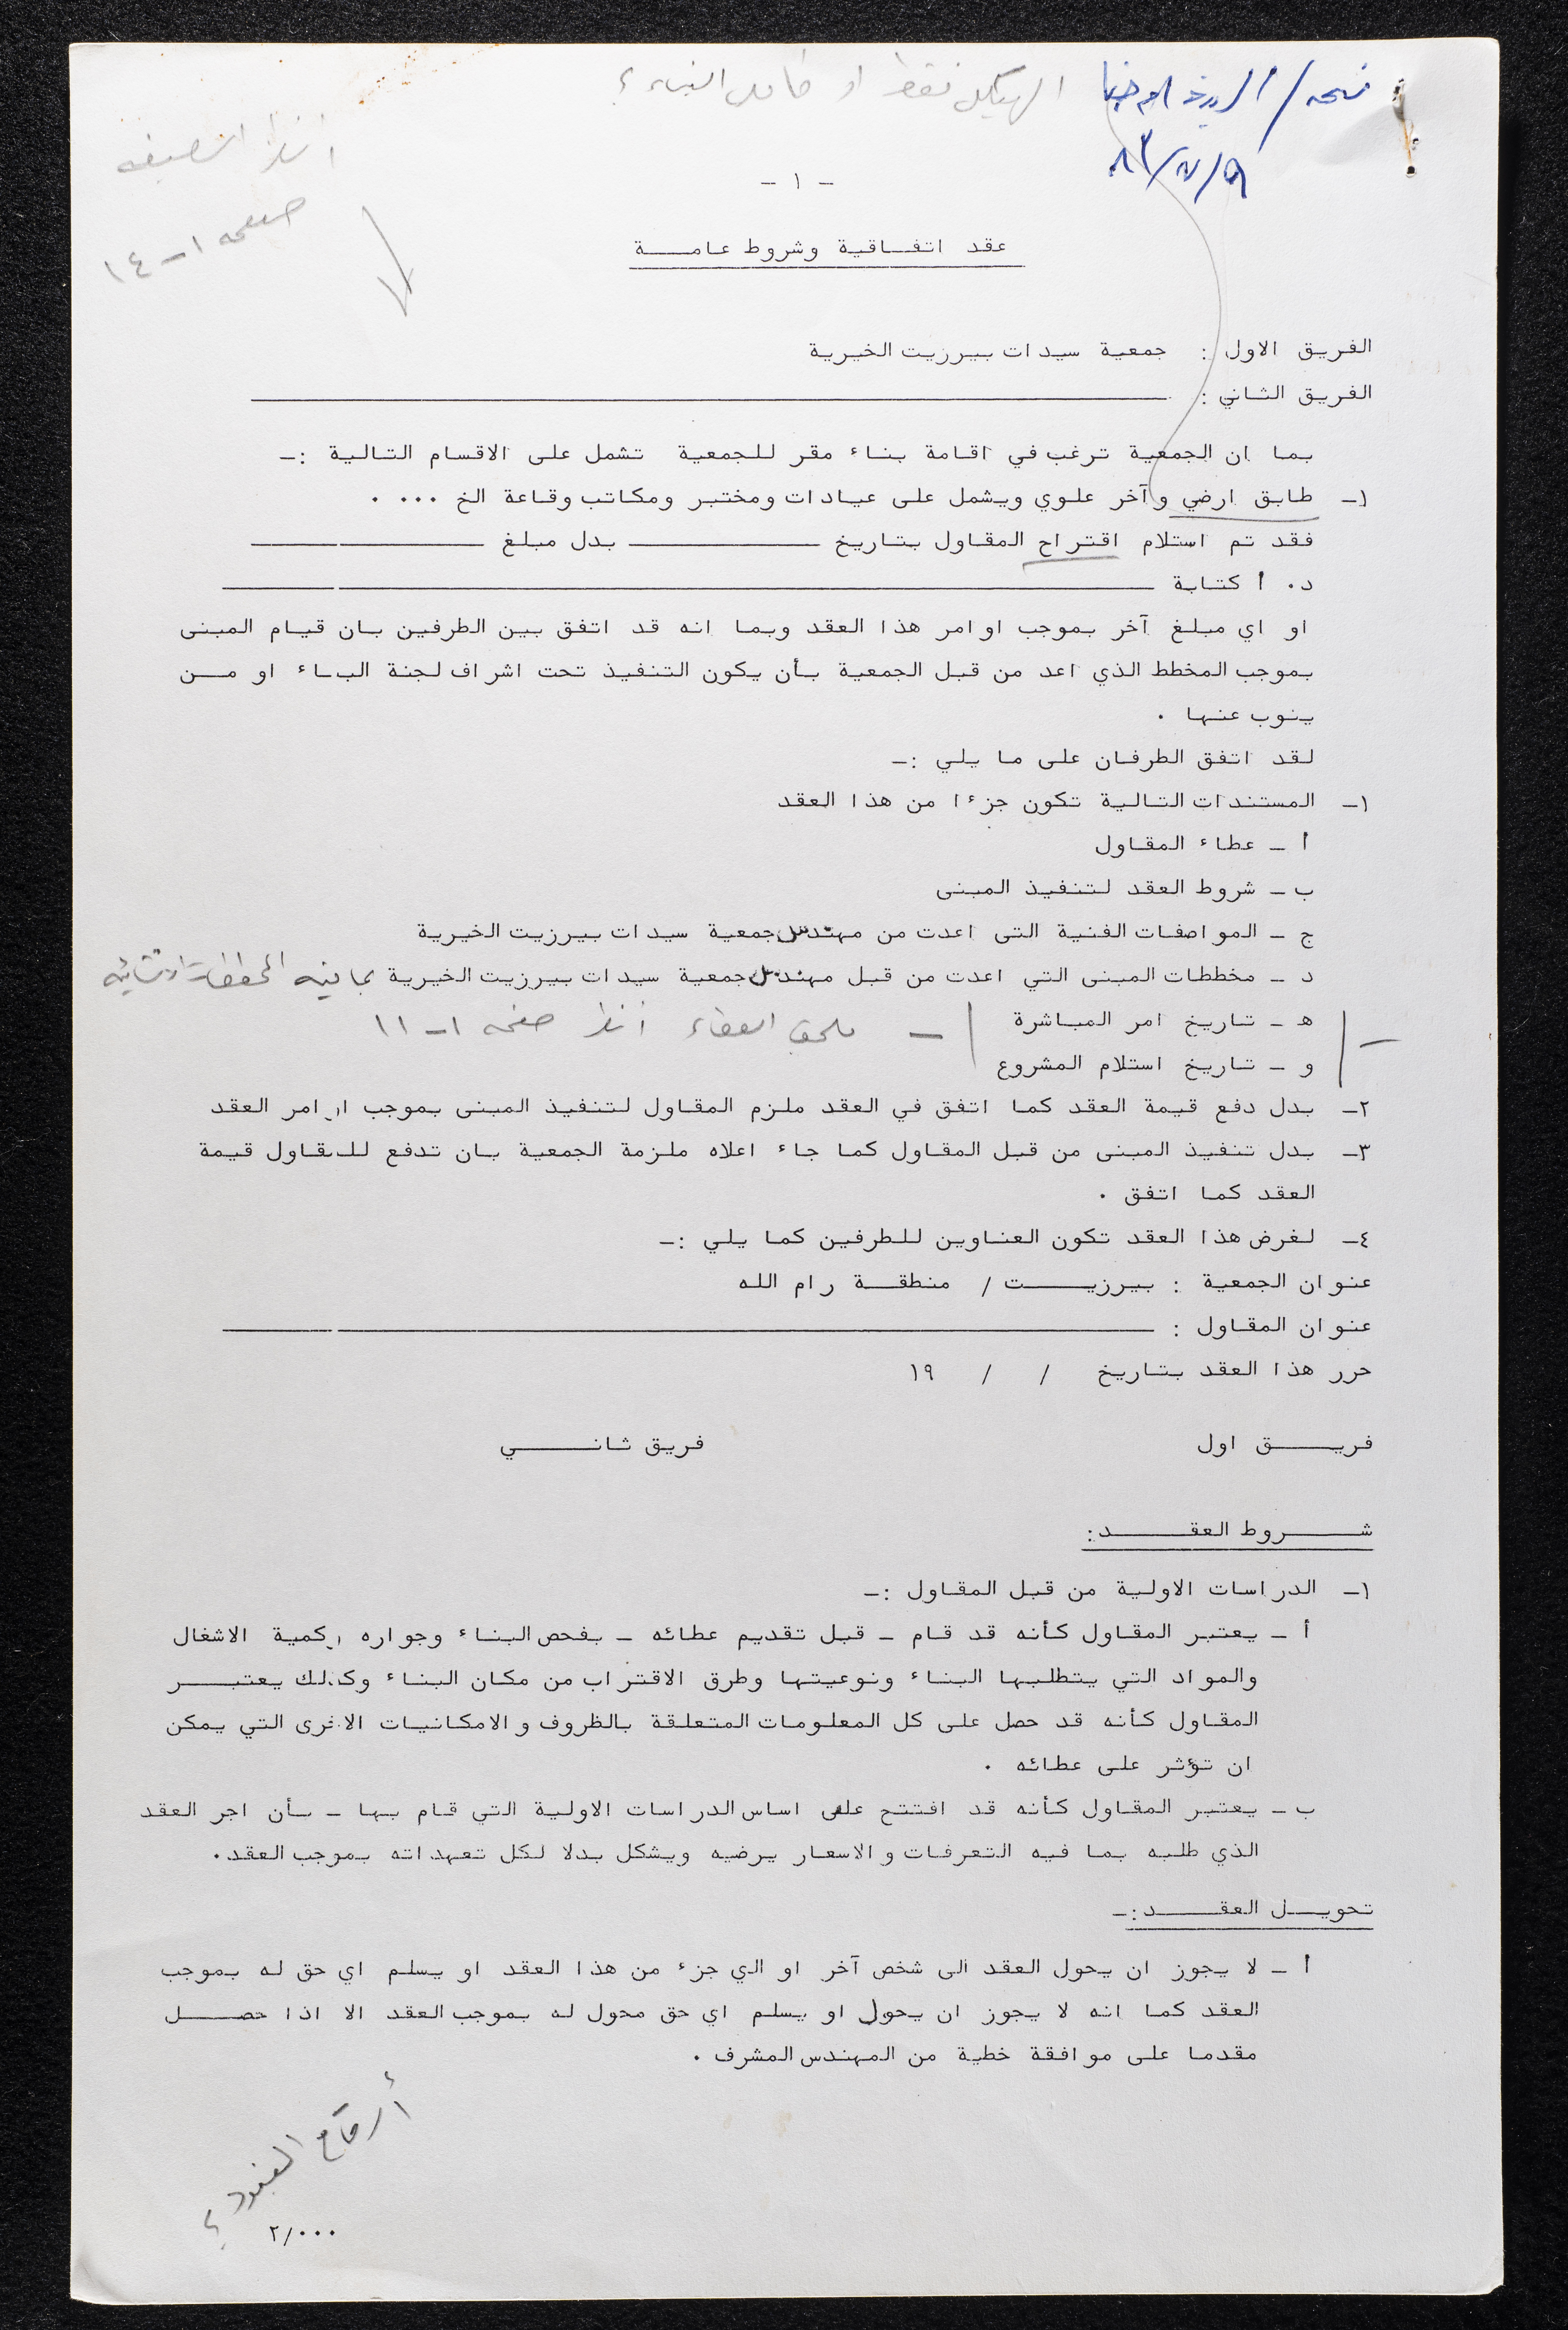 نسخة /
الهيكل فقط او كامل البناء ؟
٩/٧/٨٣
انظر الصيغة
صفحة ١-١٤
- ١ -
عقد اتفـاقية وشروط عامــة
الفريق الاول : جمعية سيدات بيرزيت الخيرية
الفريق الثاني :
بما ان الجمعية ترغب في اقامة بناء مقر للجمعية تشمل على الاقسام التالية :-
١- طابق ارضي وآخر علوي ويشمل على عيادات ومختبر ومكاتب وقاعة الخ ... .
فقد تم استلام اقتراح المقاول بتاريخ ــــــــ بدل مبلغ ــــــــ
د. أ كتابة ــــــــ
او اي مبلغ آخر بموجب اوامر هذا العقد وبما انه قد اتفق بين الطرفين بان قيام المبنى
بموجب المخطط الذي اعد من قبل الجمعية بأن يكون التنفيذ تحت اشراف لجنة البناء او مــن
ينوب عنها .
لقد اتفق الطرفان على ما يلي :-
١- المستندات التالية تكون جزءا من هذا العقد
أ - عطاء المقاول
ب - شروط العقد لتنفيذ المبنى
ج - المواصفات الفنية التى اعدت من مهندس جمعية سيدات بيرزيت الخيرية
د - مخططات المبنى التي اعدت من قبل مهندس جمعية سيدات بيرزيت الخيرية بما فيه المخططات الانشائية
ه - تاريخ امر المباشرة
- ملحق العطاء انظر صفحة ١-١١
و - تاريخ استلام المشروع
٢- بدل دفع قيمة العقد كما اتفق في العقد ملزم المقاول لتنفيذ المبنى بموجب اوامر العقد
٣- بدل تنفيذ المبنى من قبل المقاول كما جاء اعلاه ملزمة الجمعية بان تدفع للمقاول قيمة
العقد كما اتفق .
٤- لغرض هذا العقد تكون العناوين للطرفين كما يلي :-
عنوان الجمعية : بيرزيــت / منطقــة رام الله
عنوان المقاول :
حرر هذا العقد بتاريخ / / ١٩
فريــق اول فريق ثانــي
شــروط العقــد:
١- الدراسات الاولية من قبل المقاول :-
أ - يعتبر المقاول كأنه قد قام - قبل تقديم عطائه - بفحص البناء وجواره وكمية الاشغال
والمواد التي يتطلبها البناء ونوعيتها وطرق الاقتراب من مكان البناء وكذلك يعتبــر
المقاول كأنه قد حصل على كل المعلومات المتعلقة بالظروف والامكانيات الاخرى التي يمكن
ان تؤثر على عطائه .
ب - يعتبر المقاول كأنه قد افتتح على اساس الدراسات الاولية التي قام بها - بأن اجر العقد
الذي طلبه بما فيه التعرفات والاسعار يرضيه ويشكل بدلا لكل تعهداته بموجب العقد.
تحويــل العقــد:-
أ - لا يجوز ان يحول العقد الى شخص آخر او الي جزء من هذا العقد او يسلم اي حق له بموجب
العقد كما انه لا يجوز ان يحول او يسلم اي حق محول له بموجب العقد الا اذا حصــل
مقدما على موافقة خطية من المهندس المشرف .
أرقام البنود ؟
٢/٠٠٠